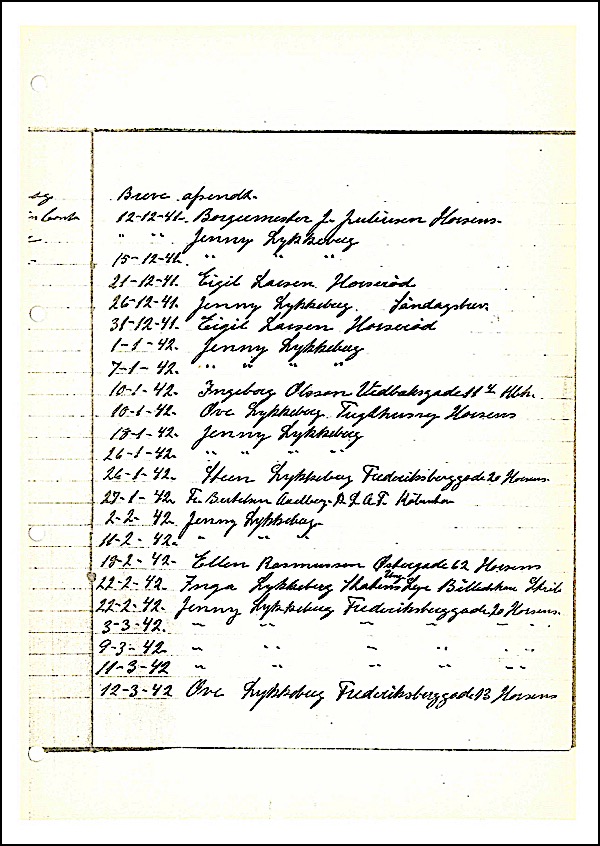 Breve afsendt.
12-12-41. Borgermester J. Juliussen Horsens.
" " Jenny Lykkeberg
15-12-41. " "
21-12-41. Eigil Larsen Horserød
26-12-41. Jenny Lykkeberg. Søndagsbrev.
31-12-41. Eigil Larsen Horserød
1-1-42. Jenny Lykkeberg
7-1-42. " " "
10-1-42. Ingeborg Olsson Vedbæksgade 11
10-1-42. Ove Lykkeberg. Tugthusvej Horsens
18-1-42. Jenny Lykkeberg
26-1-42. " " " "
26-1-42. Steen Lykkeberg Frederiksberggade 20 Horsens
27-1-42. Fr. Bertelsen København
2-2-42. Jenny Lykkeberg.
11-2-42. " " "
18-2-42. Ellen Rasmussen Østergade 62 Horsens
22-2-42. Inga Lykkeberg
22-2-42. Jenny Lykkeberg Frederiksberggade 20 Horsens.
3-3-42. " " " " "
9-3-42. " " " " "
11-3-42 " " " "
12-3-42 Ove Lykkeberg Frederiksberggade 13 Horsens